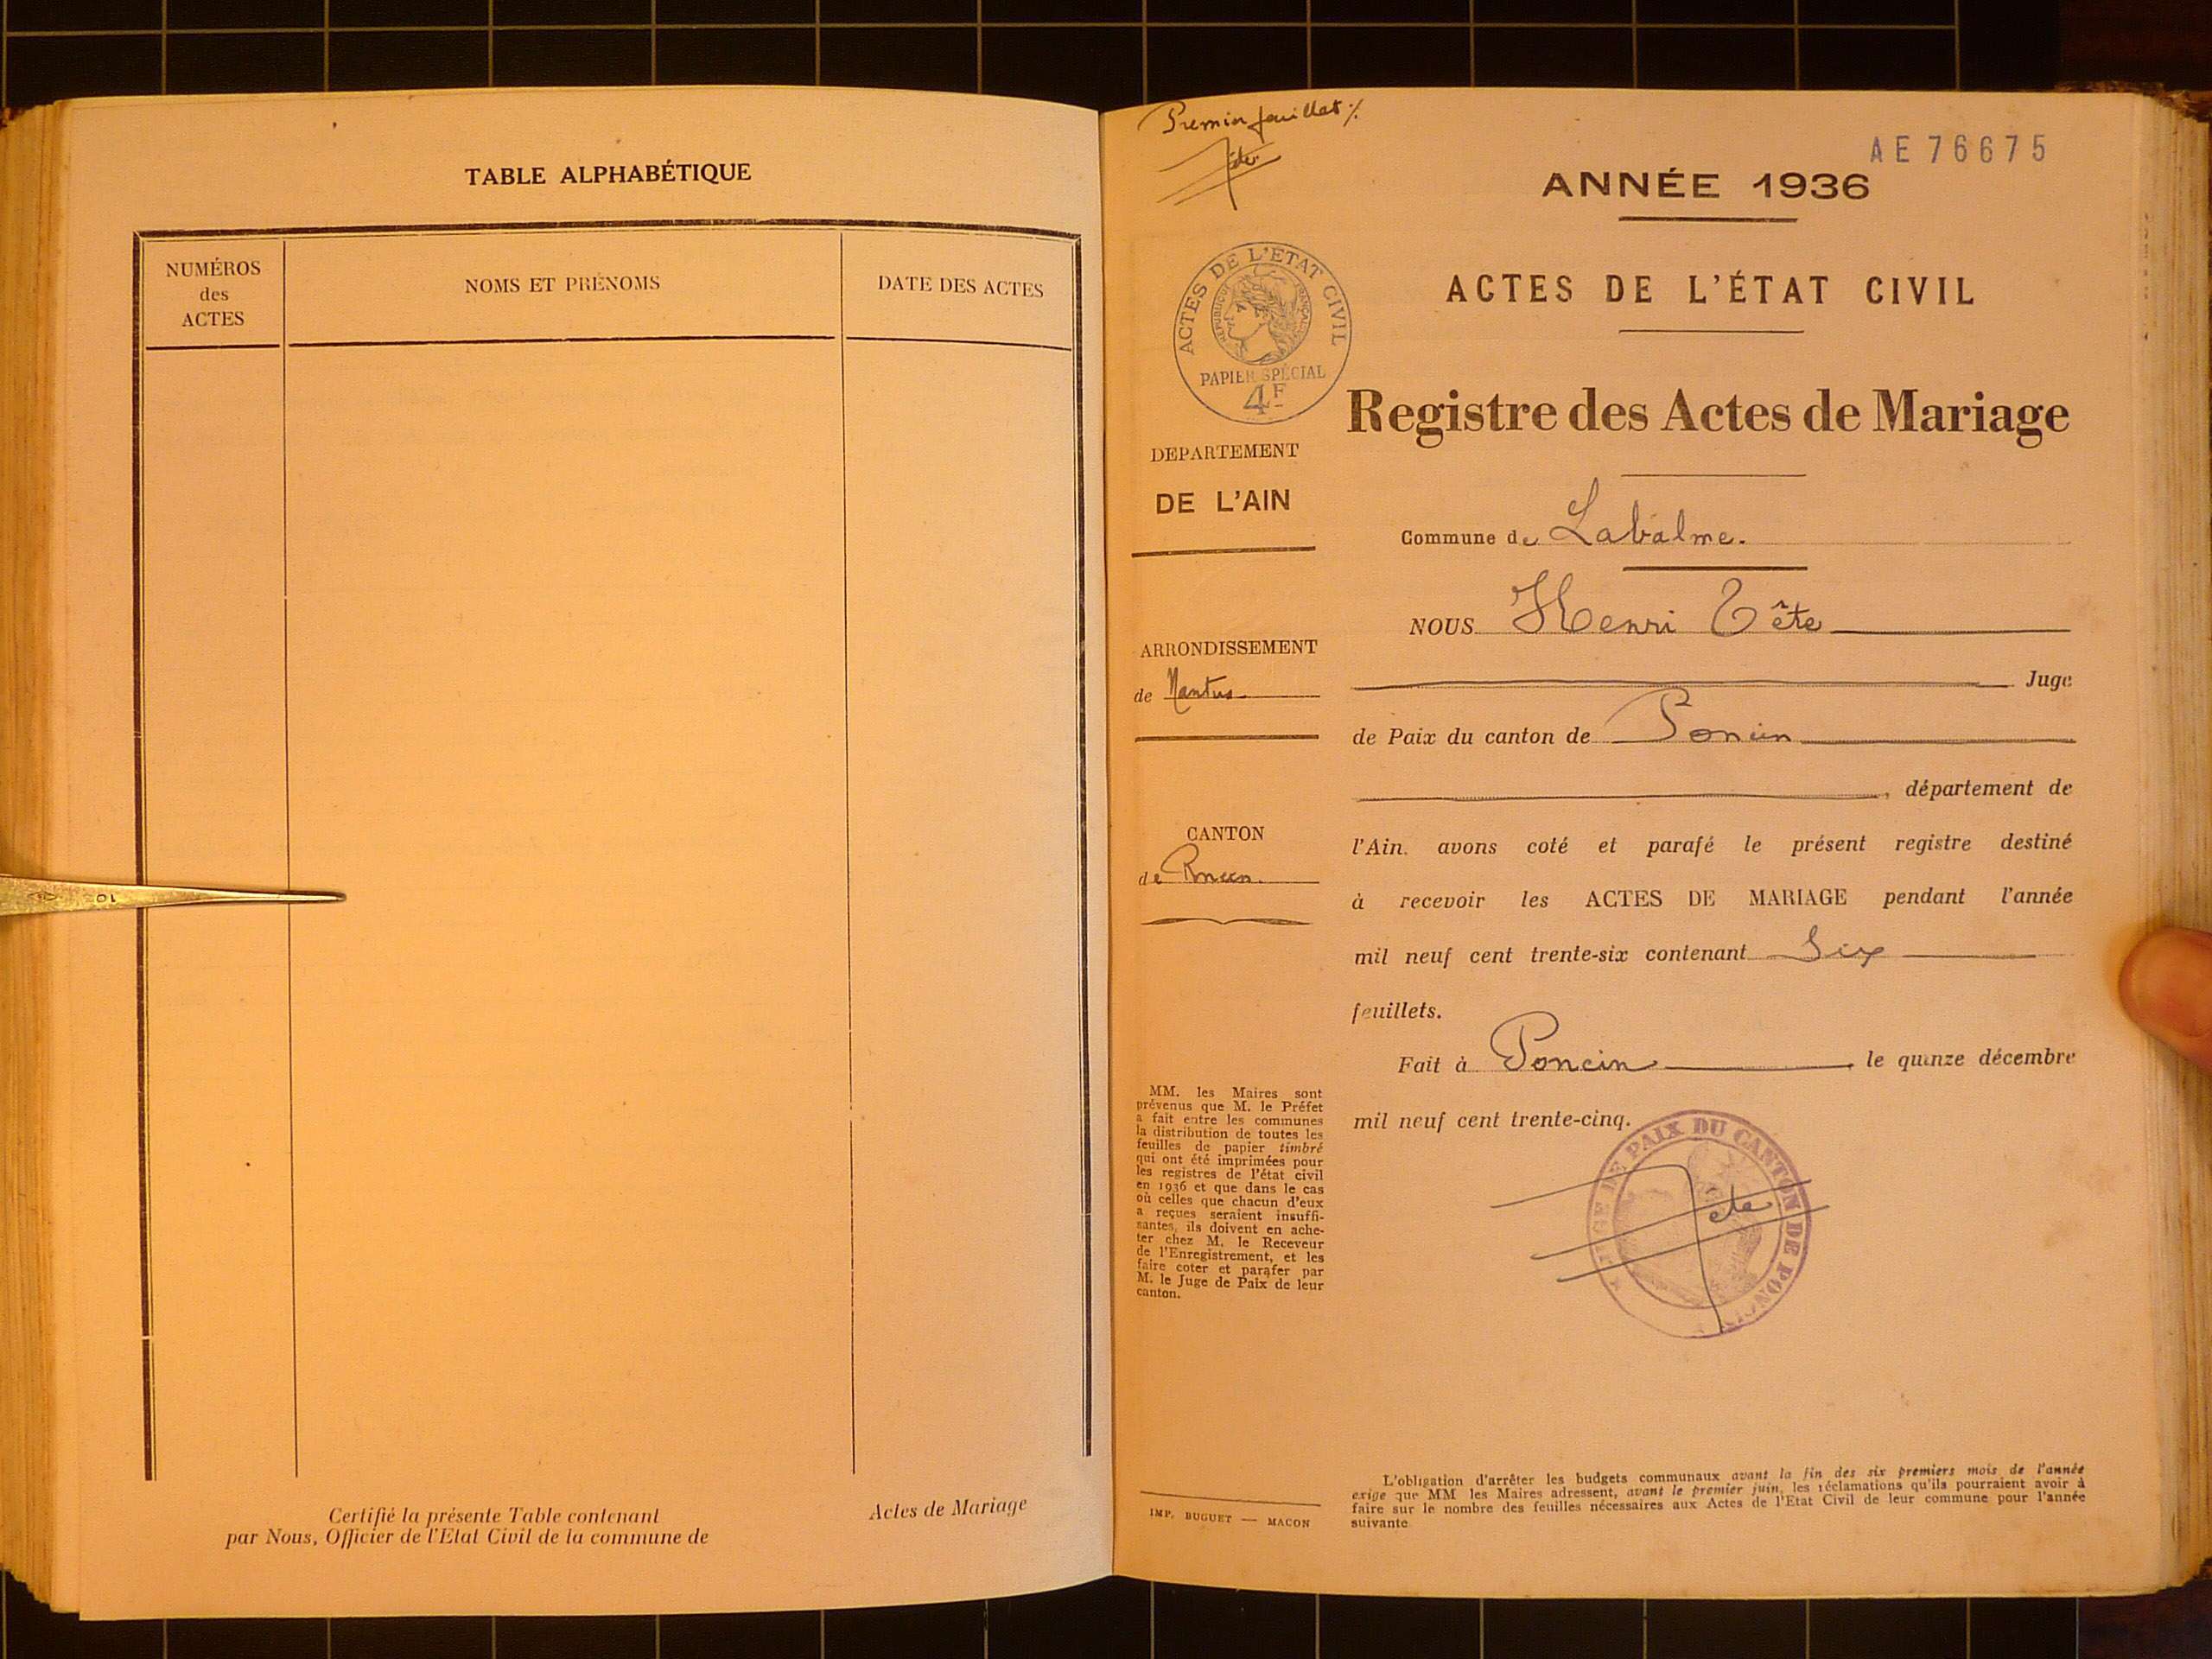 TABLE ALPHABÉTIQUE
NUMÉROS
des
ACTES
NOMS ET PRÉNOMS
DATE DES ACTES
Certifié la présente Table contenant
Actes de Mariage
par Nous, Officier de l'Etat Civil de la commune de
10
Premier feuillet ./.
Tête
AE 76675
ANNÉE 1936
ACTES DE L'ÉTAT CIVIL
RÉPUBLIQUE FRANÇAISE
PAPIER SPÉCIAL
4F
ACTES DE L'ÉTAT CIVIL
Registre des Actes de Mariage
DEPARTEMENT
DE L'AIN
ARRONDISSEMENT
de Nantua
CANTON
de Poncin.
MM. les Maires sont
prévenus que M. le Préfet
a fait entre les communes
la distribution de toutes les
feuilles de papier timbré
qui ont été imprimées pour
les registres de l'état civil
en 1936 et que dans le cas
où celles que chacun d'eux
a reçues seraient insuffi-
santes, ils doivent en ache-
ter chez M. le Receveur
de l'Enregistrement, et les
faire coter et parafer par
M. le Juge de Paix de leur
canton.
IMP. BUGUET — MACON
Commune de Labalme.
NOUS Henri Tête
Juge
de Paix du canton de Poncin
, département de
l'Ain, avons coté et parafé le présent registre destiné
à recevoir les ACTES DE MARIAGE pendant l'année
mil neuf cent trente-six contenant Six
feuillets.
Fait à Poncin le quinze décembre
mil neuf cent trente-cinq.
JUGE DE PAIX DU CANTON DE PONCIN
Tête
L'obligation d'arrêter les budgets communaux avant la fin des six premiers mois de l'année
exige que MM les Maires adressent, avant le premier juin, les réclamations qu'ils pourraient avoir à
faire sur le nombre des feuilles nécessaires aux Actes de l'Etat Civil de leur commune pour l'année
suivante